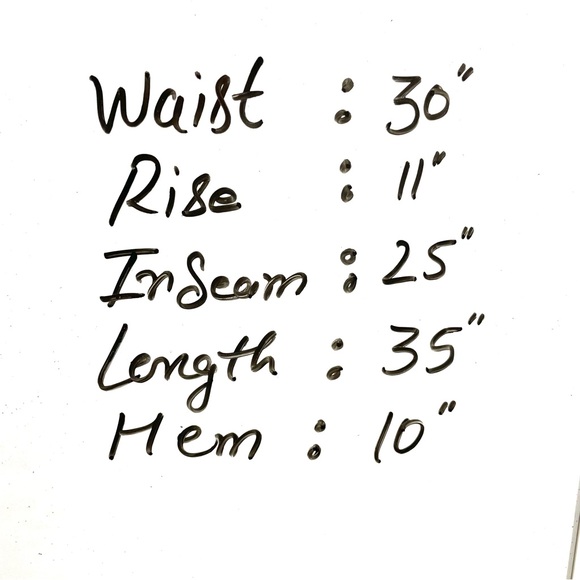 Waist : 30"
Rise : 11"
Inseam : 25"
Length : 35"
Hem : 10"